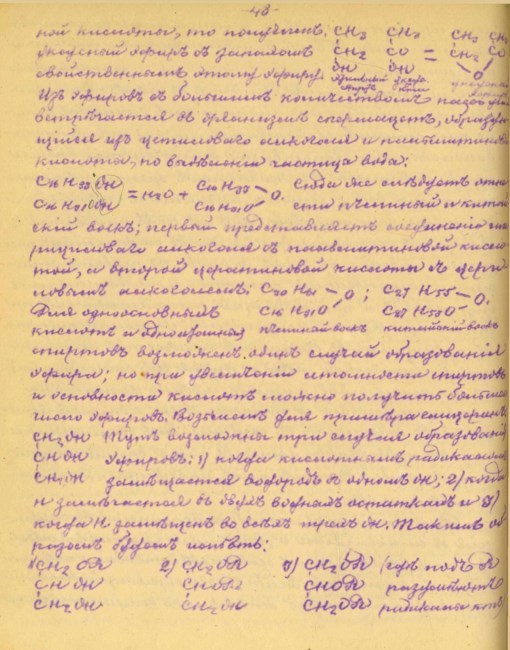 -48-
ной кислоты, то получимъ CH3 CH3 CH3 CH3
уксусный эфиръ съ запахомъ CH2 CO = CH2 CO
свойственнымъ этому эфиру. OH OH O
Изъ эфировъ съ большимъ количествомъ
встрѣчается въ спермацетъ, образую-
щійся изъ цетиловаго алкоголя и пальмитиновой
кислоты, по выдѣленіи частицы воды:
C16H33 OH = H2O + C16H33 - O. Сюда же слѣдуетъ отне-
C16H31O OH C16H31O сти пчелиный и китай-
скій воскъ; первый представляетъ соединеніе ми-
рициловаго алкоголя съ пальмитиновой кисло-
той, а второй церотиновой кислоты съ цери-
ловымъ алкоголемъ: C30H61 - O; C27H55 - O.
Для одноосновныхъ C16H31O C27H53O
кислотъ и одноатомныхъ пчелиный воскъ китайскій воскъ
спиртовъ возможенъ одинъ случай образованія
эфира; но при увеличеніи атомности спиртовъ
и основности кислотъ можно получить большее
число эфировъ. Возьмемъ для примѣра глицеринъ
CH2OH Тутъ возможны три случая образованія
CHOH эфировъ: 1) когда кислотнымъ радикаломъ
CH2OH замѣщается водородъ въ одномъ OH; 2) когда
H замѣщается въ двухъ водныхъ остаткахъ и 3)
когда H замѣщенъ во всѣхъ трехъ OH. Такимъ об-
разомъ будемъ имѣть:
1) CH2OR 2) CH2OR 3) CH2OR (гдѣ подъ R
CHOH CHOR CHOR разумѣютъ
CH2OH CH2OH CH2OR радикалъ кты)